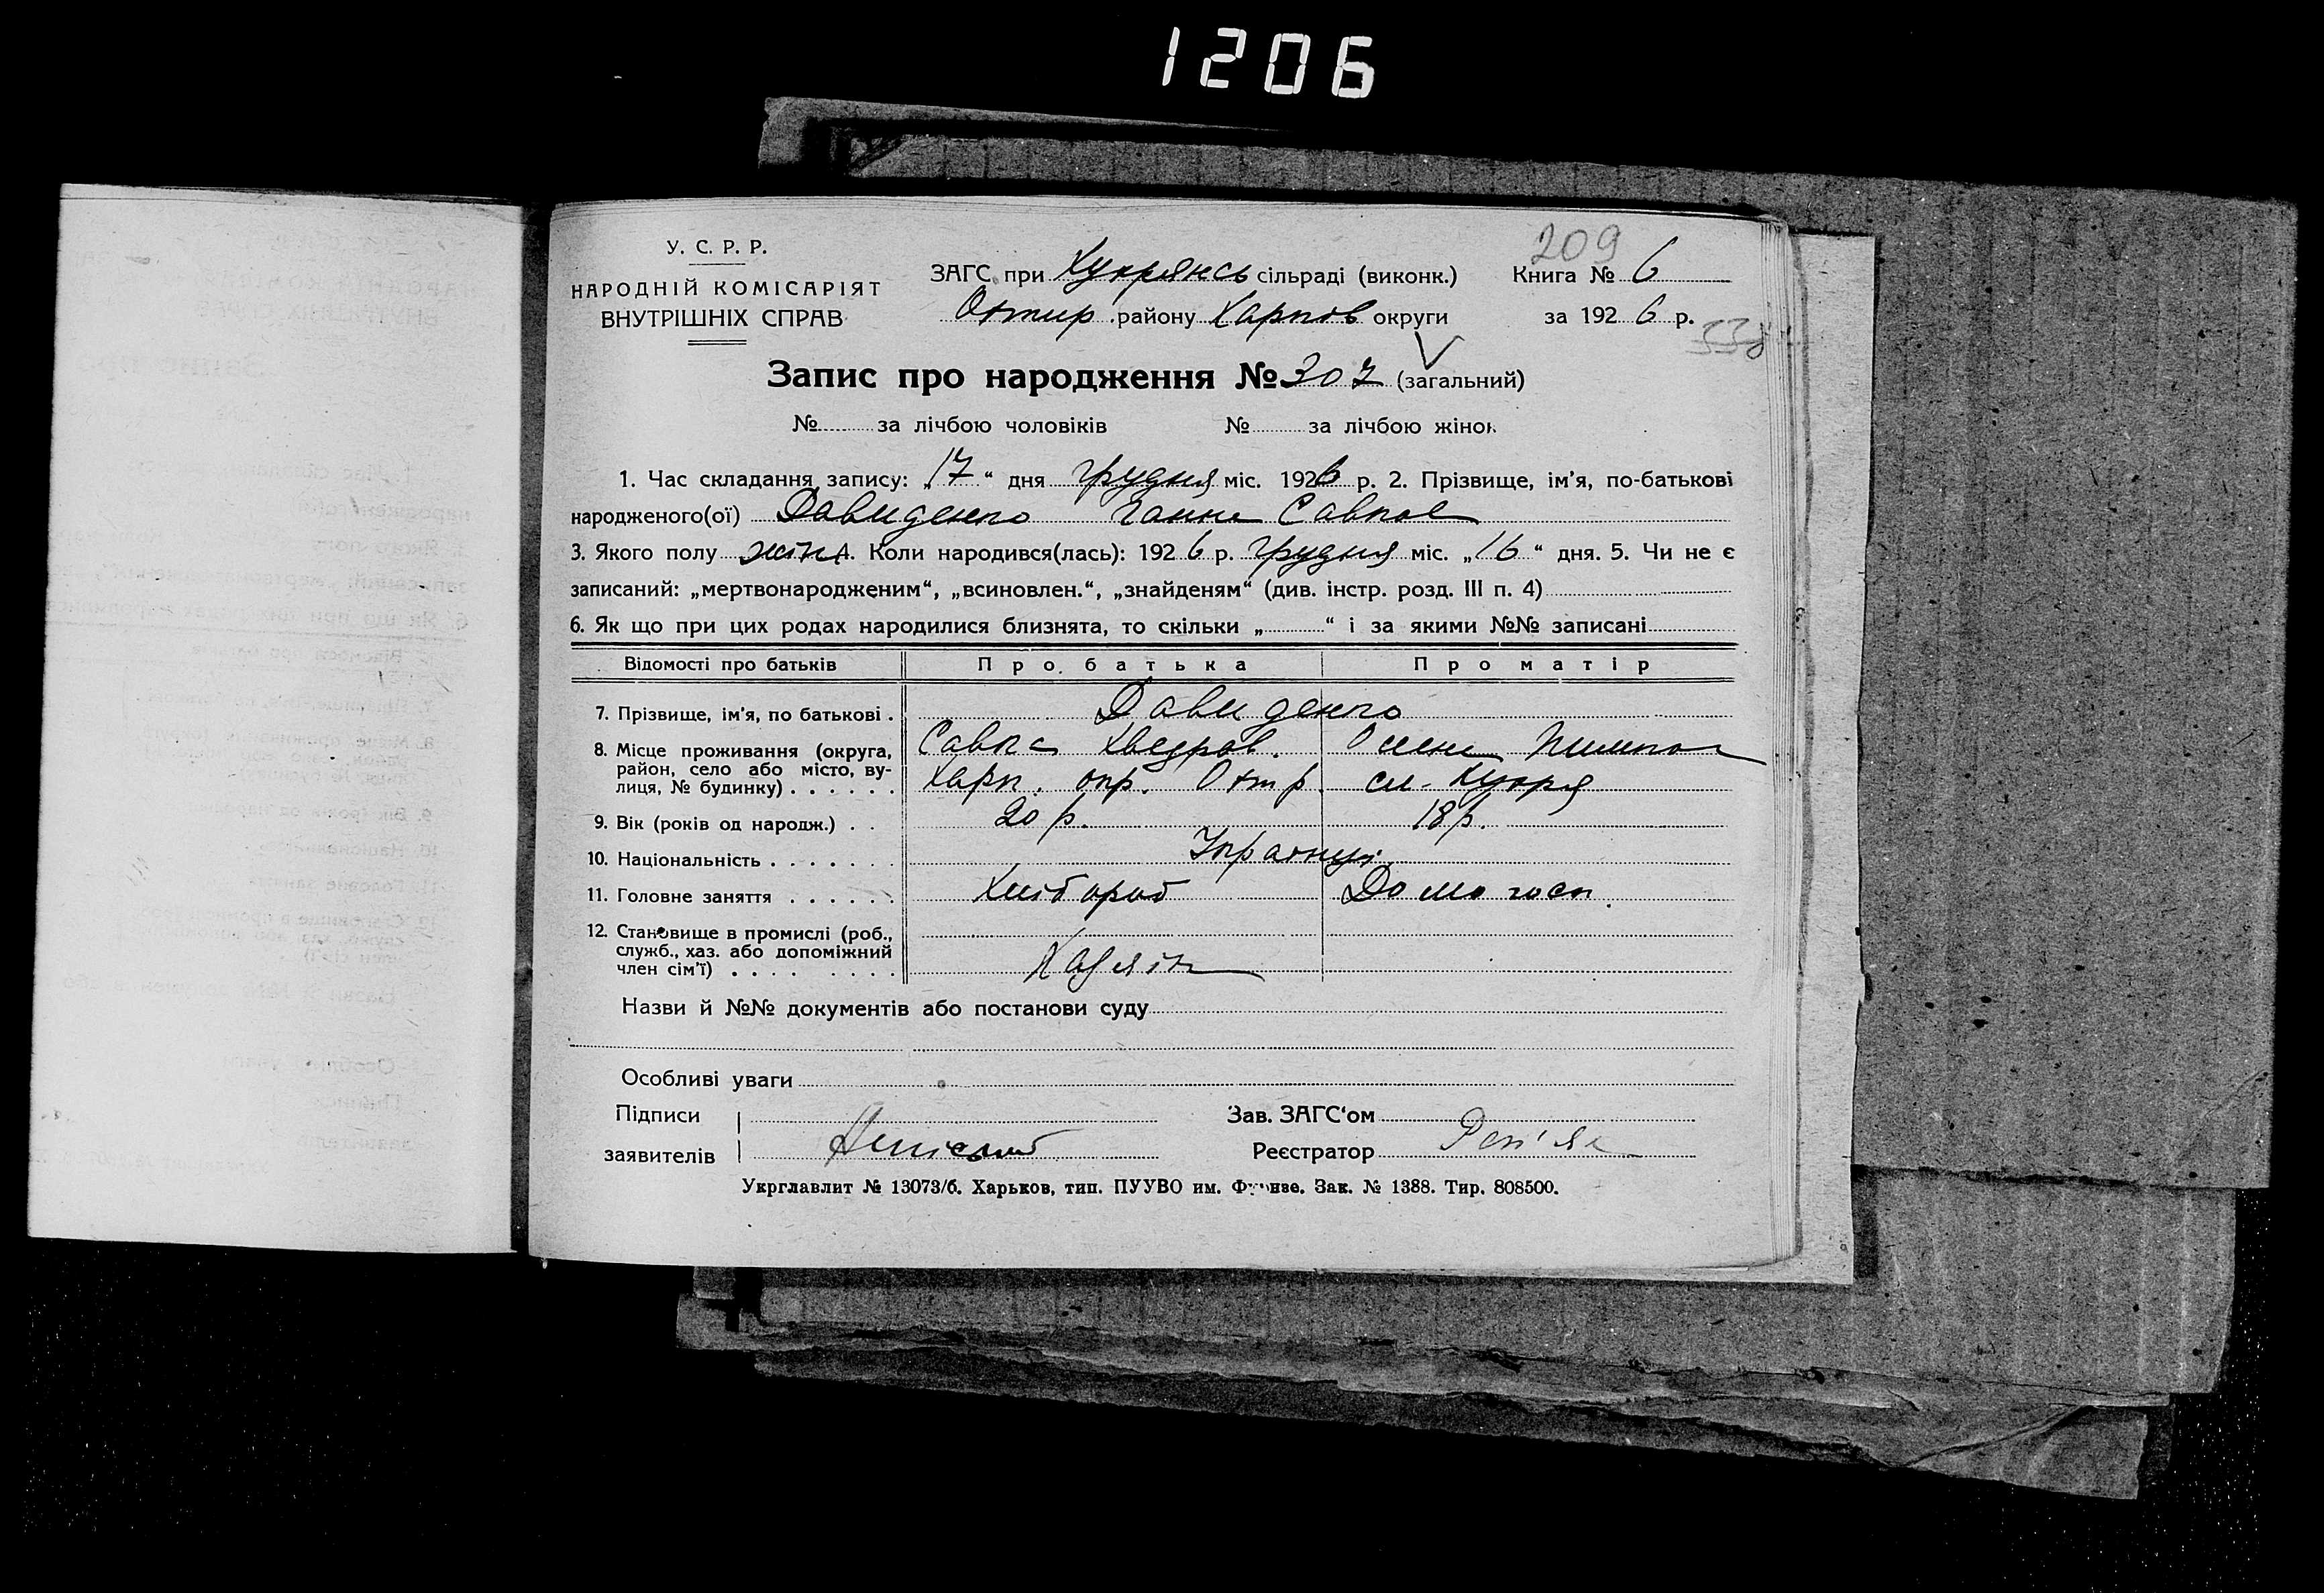 1206
209
У. С. Р. Р.
НАРОДНІЙ КОМІСАРІЯТ
ВНУТРІШНІХ СПРАВ
ЗАГС при Хухрянсь сільраді (виконк.) Книга № 6
Охтир району Харков округи за 1926 р.
338
Запис про народження № 307 (загальний)
№ за лічбою чоловіків № за лічбою жінок
1. Час складання запису: „17“ дня грудня міс. 1926 р. 2. Прізвище, ім'я, по-батькові
народженого(ої) Давиденко Ганна Савков
3. Якого полу жін 4. Коли народився(лась): 1926 р. Грудня міс. „16“ дня. 5. Чи не є
записаний: „мертвонародженим“, „всиновлен.“, „знайденям“ (див. інстр. розд. III п. 4)
6. Як що при цих родах народилися близнята, то скільки „ “ і за якими №№ записані
Відомості про батьків Про батька Про матір
7. Прізвище, ім'я, по батькові . Давиденко
Савка Хведров.
8. Місце проживання (округа,
район, село або місто, ву-
лиця, № будинку) . . . . . . Харк. окр. Охт р. сл. Хухря
9. Вік (років од народж.) . . 20 р. 18 р.
10. Національність . . . . . . . Українці
11. Головне заняття . . . . . . Хлібороб Домогосп.
12. Становище в промислі (роб.,
служб., хаз. або допоміжний
член сім'ї) . . . . . . . . . Хазяїн
Назви й №№ документів або постанови суду
Особливі уваги
Підписи Зав. ЗАГС'ом
заявителів Реєстратор Реп'ях
Укрглавлит № 13073/б. Харьков, тип. ПУУВО им. Фрунзе. Зак. № 1388. Тир. 808500.